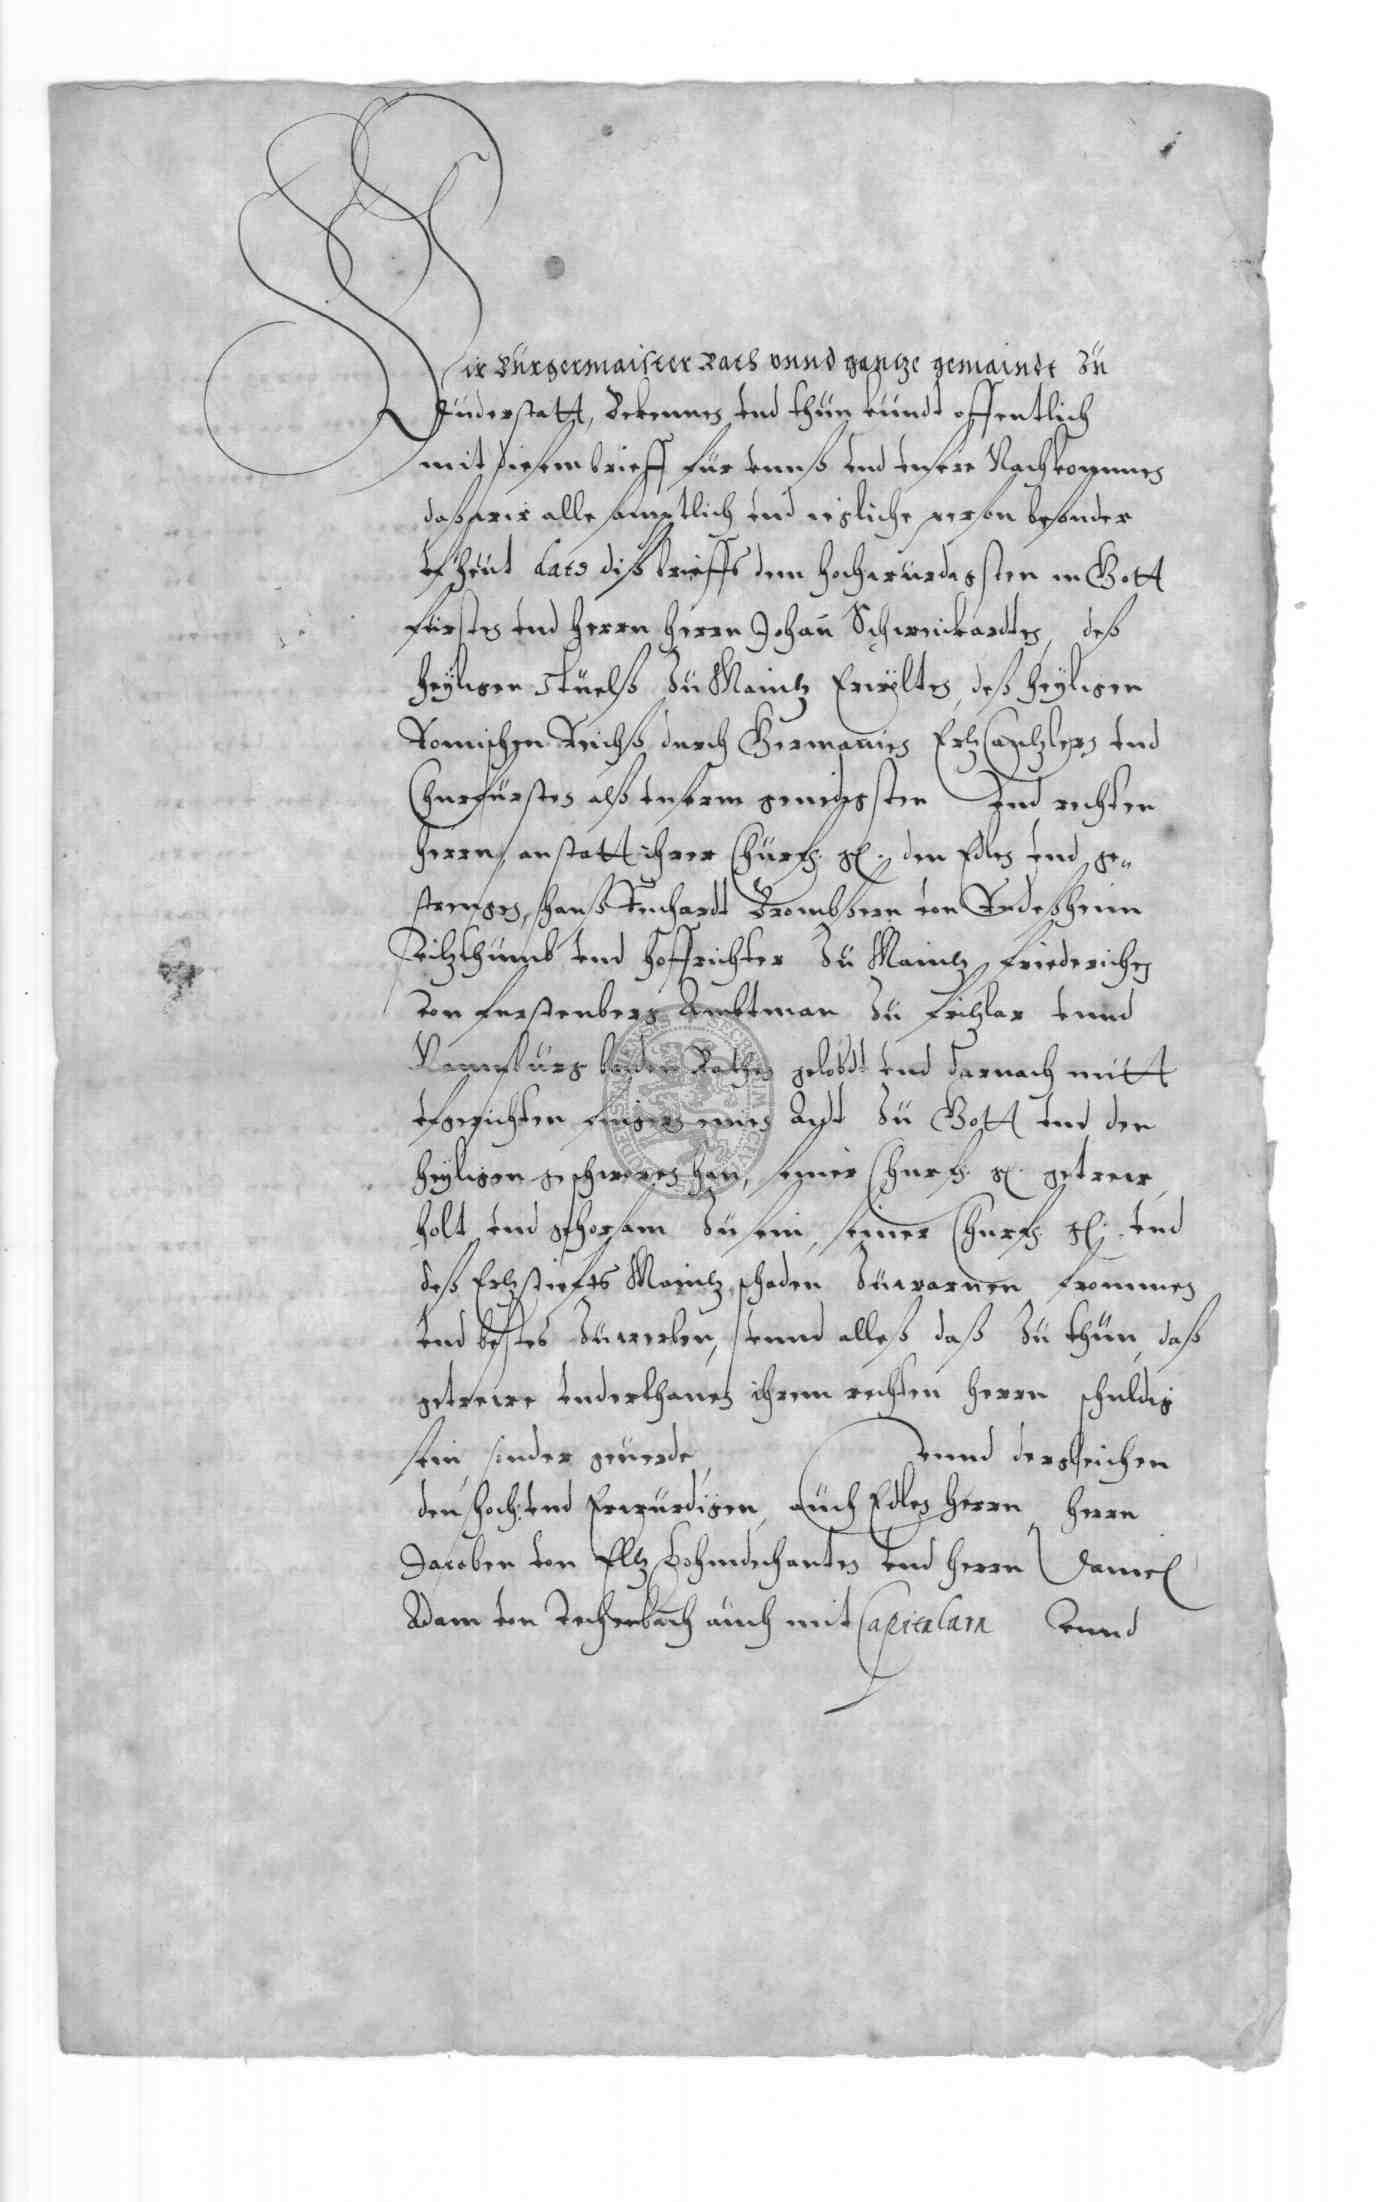 Wir Bürgermaister Rath vnnd gantze gemaindt zü
Düderstatt, Bekennen vnd thün kündt offentlich
mit diesem brieff für vnnß vnd vnsere Nachkommen
daß wir alle samptlich vnd iegliche person besonder
vf heüt dato diß brieffs dem hochwürdigsten in Gott
fürsten vnd herrn herrn Johan Schweickardten, deß
heyligen Stüelß zü Maintz Erwölten, deß heyligen
Romischen Reichß durch Germanien Ertz Cantzlers vnd
Churfürsten alß vnserm genedigsten vnd rechten
herrn, anstatt ihrer Chürfs. gl. den Edlen vnd ge„
strengen, Hanß Reichardt Brombsern von Rüdeßheim
Vitzthümb vnd hoffrichter zü Maintz, Friederichen
von Furstenberg Ambtman zü Fritzlar vnnd
Naumbürg beeden Rathen gelobdt vnd darnach mitt
vfgerichten fingern einen Aydt zü Gott vnd den
heyligen geschworen han, seiner Churfs. gl. getrew,
holt vnd gehorsam zü sein, seiner Churfs. gl. vnd
deß Ertzstiefts Maintz, schaden züwarnen frommen
vnd bestes züwerben, vnnd alleß daß zü thün, daß
getrewe vnderthanen ihrem rechten herrn schuldig
sein, sonder geüerde, vnnd dergleichen
den hoch: vnd Erwürdigen, aüch Edlen herrn, herrn
Jacoben von Eltz Dohmdechanten vnd herrn Daniel
Adam von aüch mit Capitularn vnnd